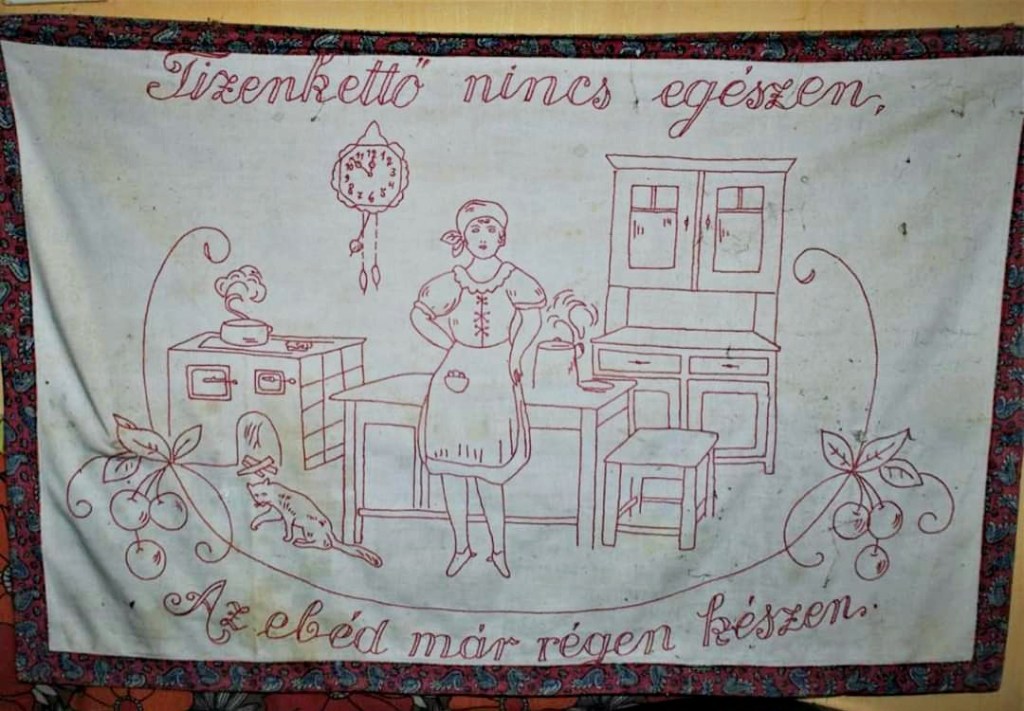 Tizenkettő nincs egészen,
Az ebéd már régen készen.